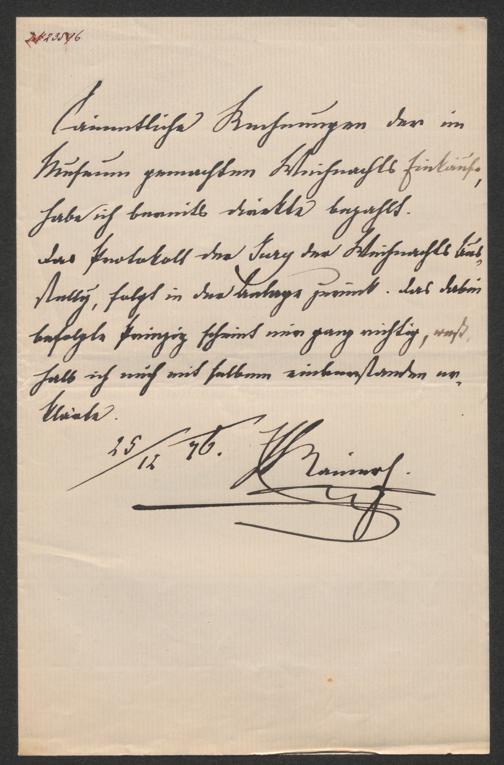 Sämmtliche Rechnungen der im
Museum gemachten Weihnachts Einkäufe,
habe ich bereits direkte bezahlt.
das Protokoll der Jury der Weihnachts Aus-
stellg, folgt in der Anlage zurück. das dabei
befolgte Prinzip scheint mir ganz richtig, weß-
halb ich mich mit selbem einverstanden er-
kläre.
25/12 76.